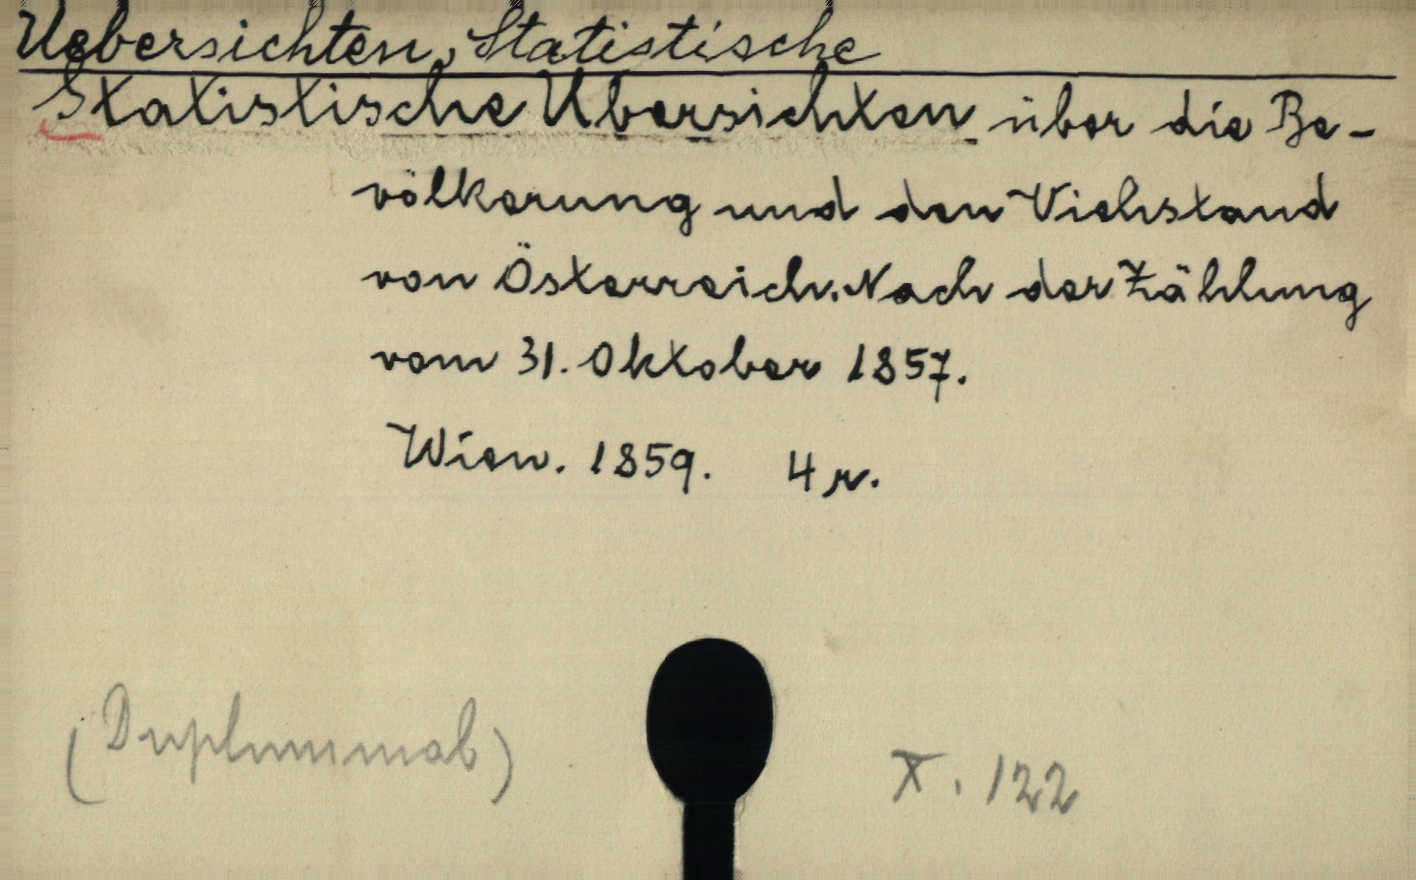 Uebersichten, Statistische
Statistische Übersichten über die Be-
völkerung und den Viehstand
von Österreich. Nach der Zählung
vom 31. Oktober 1857.
Wien. 1859. 4 r.
(Duplum mab)
X. 122